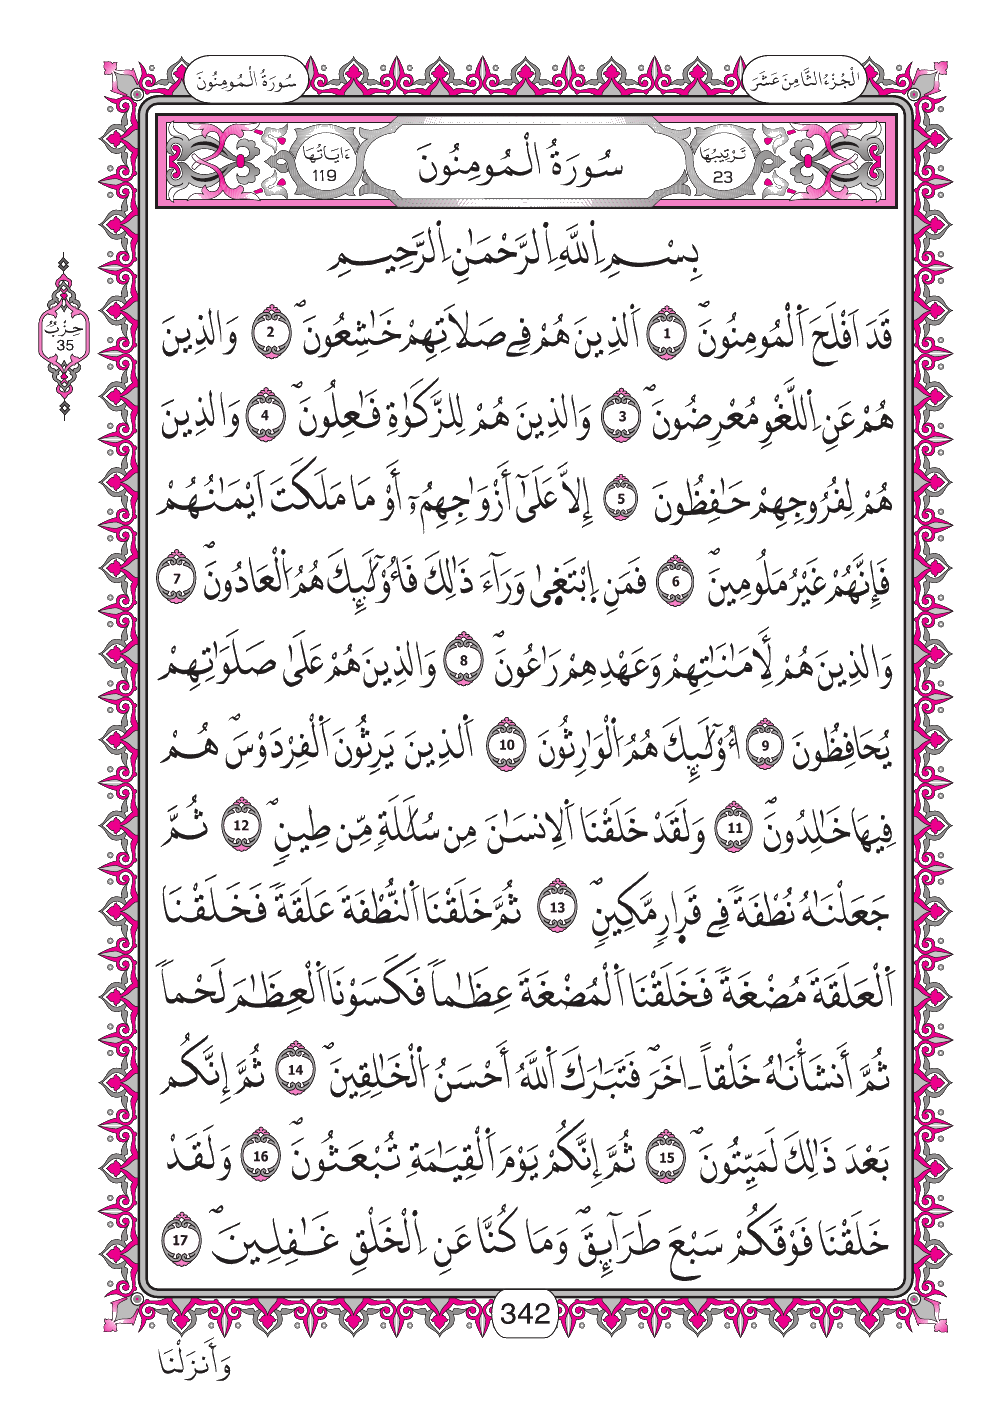 الْجُزْءُ الثَّامِنَ عَشَرَ
سُورَةُ الْمُومِنُونَ
تَرْتِيبُهَا 23
سُورَةُ الْمُومِنُونَ
ءَايَاتُهَا 119
بِسْمِ اِللَّهِ اِلرَّحْمَٰنِ اِلرَّحِيمِ
حِزْبٌ 35
قَدَ اَفْلَحَ اَلْمُومِنُونَ 1 اَلذِينَ هُمْ فِے صَلَاتِهِمْ خَٰشِعُونَ 2 وَالذِينَ
هُمْ عَنِ اِللَّغْوِ مُعْرِضُونَ 3 وَالذِينَ هُمْ لِلزَّكَوٰةِ فَٰعِلُونَ 4 وَالذِينَ
هُمْ لِفُرُوجِهِمْ حَٰفِظُونَ 5 إِلَّا عَلَىٰٓ أَزْوَٰجِهِمُۥٓ أَوْ مَا مَلَكَتَ اَيْمَٰنُهُمْ
فَإِنَّهُمْ غَيْرُ مَلُومِينَ 6 فَمَنِ اِبْتَغ۪ىٰ وَرَآءَ ذَٰلِكَ فَأُوْلَٰٓئِكَ هُمُ اُلْعَادُونَ 7
وَالذِينَ هُمْ لِأَمَٰنَٰتِهِمْ وَعَهْدِهِمْ رَٰعُونَ 8 وَالذِينَ هُمْ عَلَىٰ صَلَوَٰتِهِمْ
يُحَافِظُونَ 9 أُوْلَٰٓئِكَ هُمُ اُلْوَٰرِثُونَ 10 اَلذِينَ يَرِثُونَ اَلْفِرْدَوْسَ هُمْ
فِيهَا خَٰلِدُونَ 11 وَلَقَدْ خَلَقْنَا اَلِانسَٰنَ مِن سُلَٰلَةٖ مِّن طِينٖ 12 ثُمَّ
جَعَلْنَٰهُ نُطْفَةٗ فِے قَر۪ارٖ مَّكِينٖ 13 ثُمَّ خَلَقْنَا اَلنُّطْفَةَ عَلَقَةٗ فَخَلَقْنَا
اَلْعَلَقَةَ مُضْغَةٗ فَخَلَقْنَا اَلْمُضْغَةَ عِظَٰماٗ فَكَسَوْنَا اَلْعِظَٰمَ لَحْماٗ
ثُمَّ أَنشَأْنَٰهُ خَلْقاً ـ اخَرَ فَتَبَٰرَكَ اَللَّهُ أَحْسَنُ اُلْخَٰلِقِينَ 14 ثُمَّ إِنَّكُم
بَعْدَ ذَٰلِكَ لَمَيِّتُونَ 15 ثُمَّ إِنَّكُمْ يَوْمَ اَلْقِيَٰمَةِ تُبْعَثُونَ 16 وَلَقَدْ
خَلَقْنَا فَوْقَكُمْ سَبْعَ طَرَآئِقَ وَمَا كُنَّا عَنِ اِلْخَلْقِ غَٰفِلِينَ 17
342
وَأَنزَلْنَا